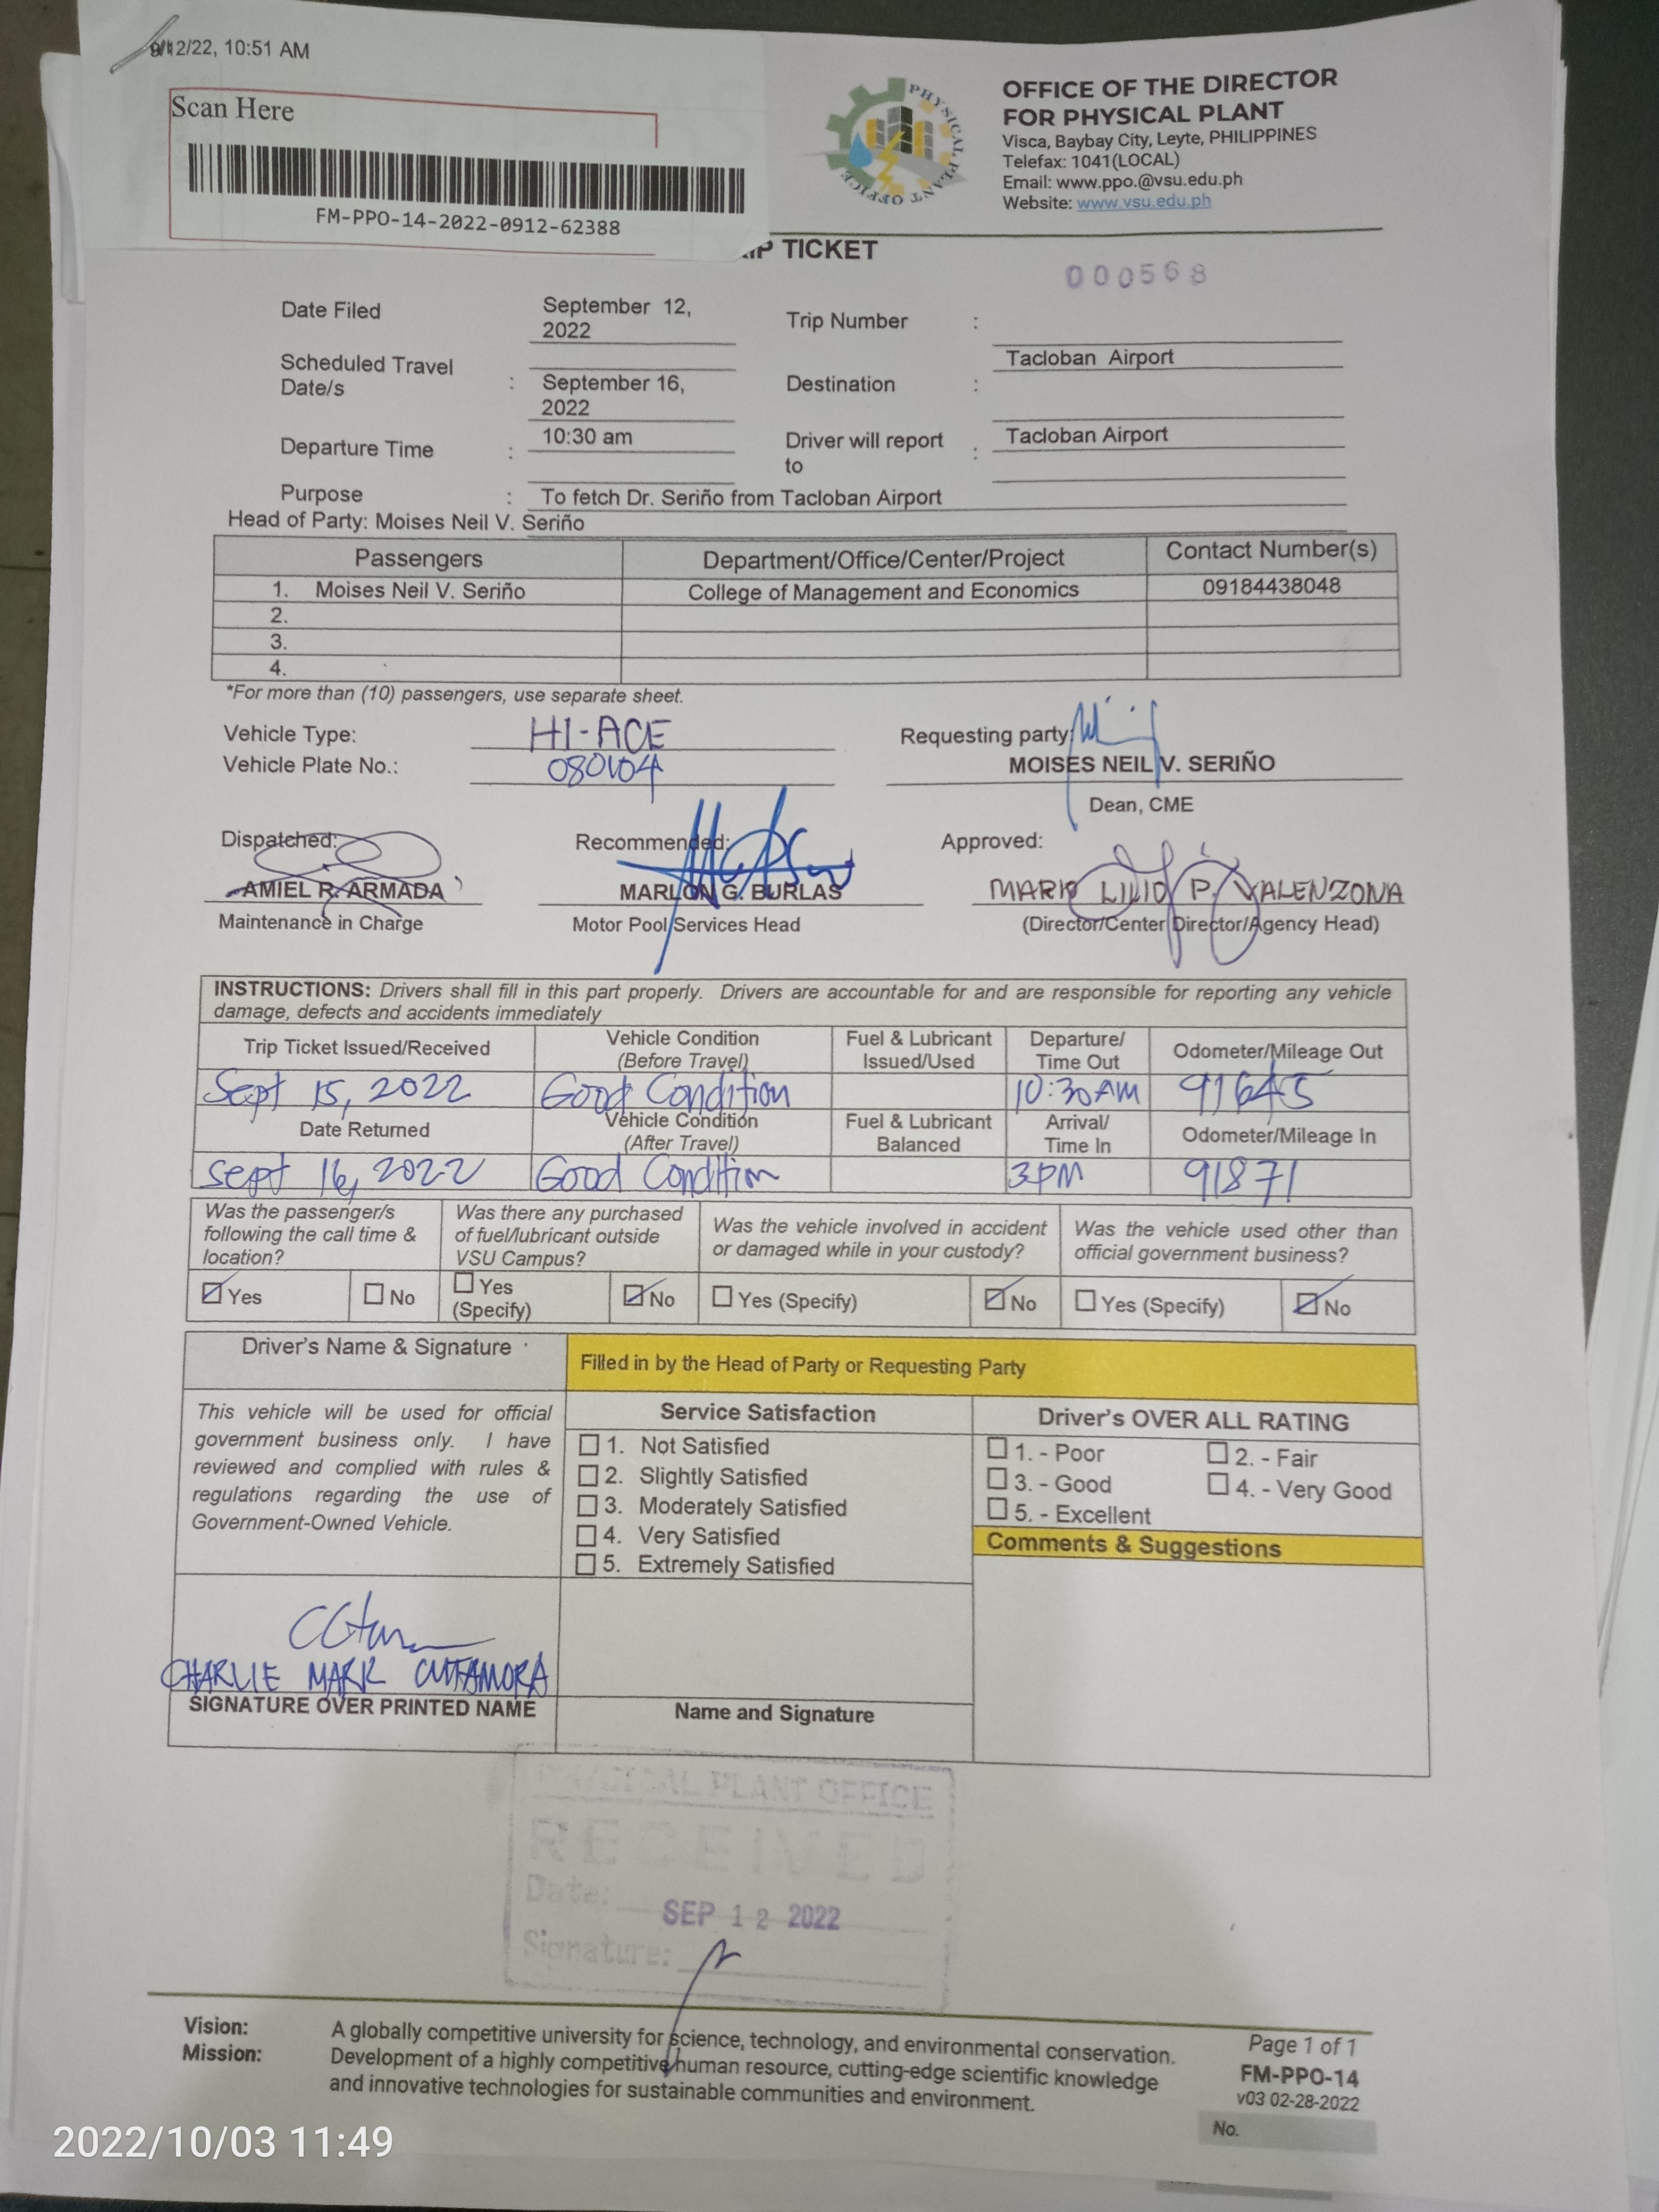 9/12/22, 10:51 AM
Scan Here
FM-PPO-14-2022-0912-62388
PHYSICAL PLANT OFFICE
OFFICE OF THE DIRECTOR
FOR PHYSICAL PLANT
Visca, Baybay City, Leyte, PHILIPPINES
Telefax: 1041(LOCAL)
Email: www.ppo.@vsu.edu.ph
Website: www.vsu.edu.ph
TICKET
000568
Date Filed September 12, 2022 Trip Number :
Scheduled Travel Date/s : September 16, 2022 Destination : Tacloban Airport
Departure Time : 10:30 am Driver will report to : Tacloban Airport
Purpose : To fetch Dr. Seriño from Tacloban Airport
Head of Party: Moises Neil V. Seriño
Passengers Department/Office/Center/Project Contact Number(s)
1. Moises Neil V. Seriño College of Management and Economics 09184438048
2.
3.
4.
*For more than (10) passengers, use separate sheet.
Vehicle Type: HI-ACE Requesting party:
Vehicle Plate No.: 080104 MOISES NEIL V. SERIÑO
Dean, CME
Dispatched: Recommended: Approved:
AMIEL R. ARMADA MARLON G. BURLAS MARK LILIO P. VALENZONA
Maintenance in Charge Motor Pool Services Head (Director/Center Director/Agency Head)
INSTRUCTIONS: Drivers shall fill in this part properly. Drivers are accountable for and are responsible for reporting any vehicle
damage, defects and accidents immediately
Trip Ticket Issued/Received Vehicle Condition (Before Travel) Fuel & Lubricant Issued/Used Departure/ Time Out Odometer/Mileage Out
Sept 15, 2022 Good Condition 10:30AM 91645
Date Returned Vehicle Condition (After Travel) Fuel & Lubricant Balanced Arrival/ Time In Odometer/Mileage In
Sept 16, 2022 Good Condition 3PM 91871
Was the passenger/s following the call time & location? Was there any purchased of fuel/lubricant outside VSU Campus? Was the vehicle involved in accident or damaged while in your custody? Was the vehicle used other than official government business?
Yes No Yes (Specify) No Yes (Specify) No Yes (Specify) No
Driver's Name & Signature Filled in by the Head of Party or Requesting Party
This vehicle will be used for official
government business only. I have
reviewed and complied with rules &
regulations regarding the use of
Government-Owned Vehicle.
Service Satisfaction
1. Not Satisfied
2. Slightly Satisfied
3. Moderately Satisfied
4. Very Satisfied
5. Extremely Satisfied
Driver's OVER ALL RATING
1. - Poor 2. - Fair
3. - Good 4. - Very Good
5. - Excellent
Comments & Suggestions
CHARLIE MARK CUTAMORA
SIGNATURE OVER PRINTED NAME Name and Signature
PHYSICAL PLANT OFFICE
RECEIVED
Date: SEP 12 2022
Signature:
Vision: A globally competitive university for science, technology, and environmental conservation.
Mission: Development of a highly competitive human resource, cutting-edge scientific knowledge
and innovative technologies for sustainable communities and environment.
Page 1 of 1
FM-PPO-14
v03 02-28-2022
No.
2022/10/03 11:49